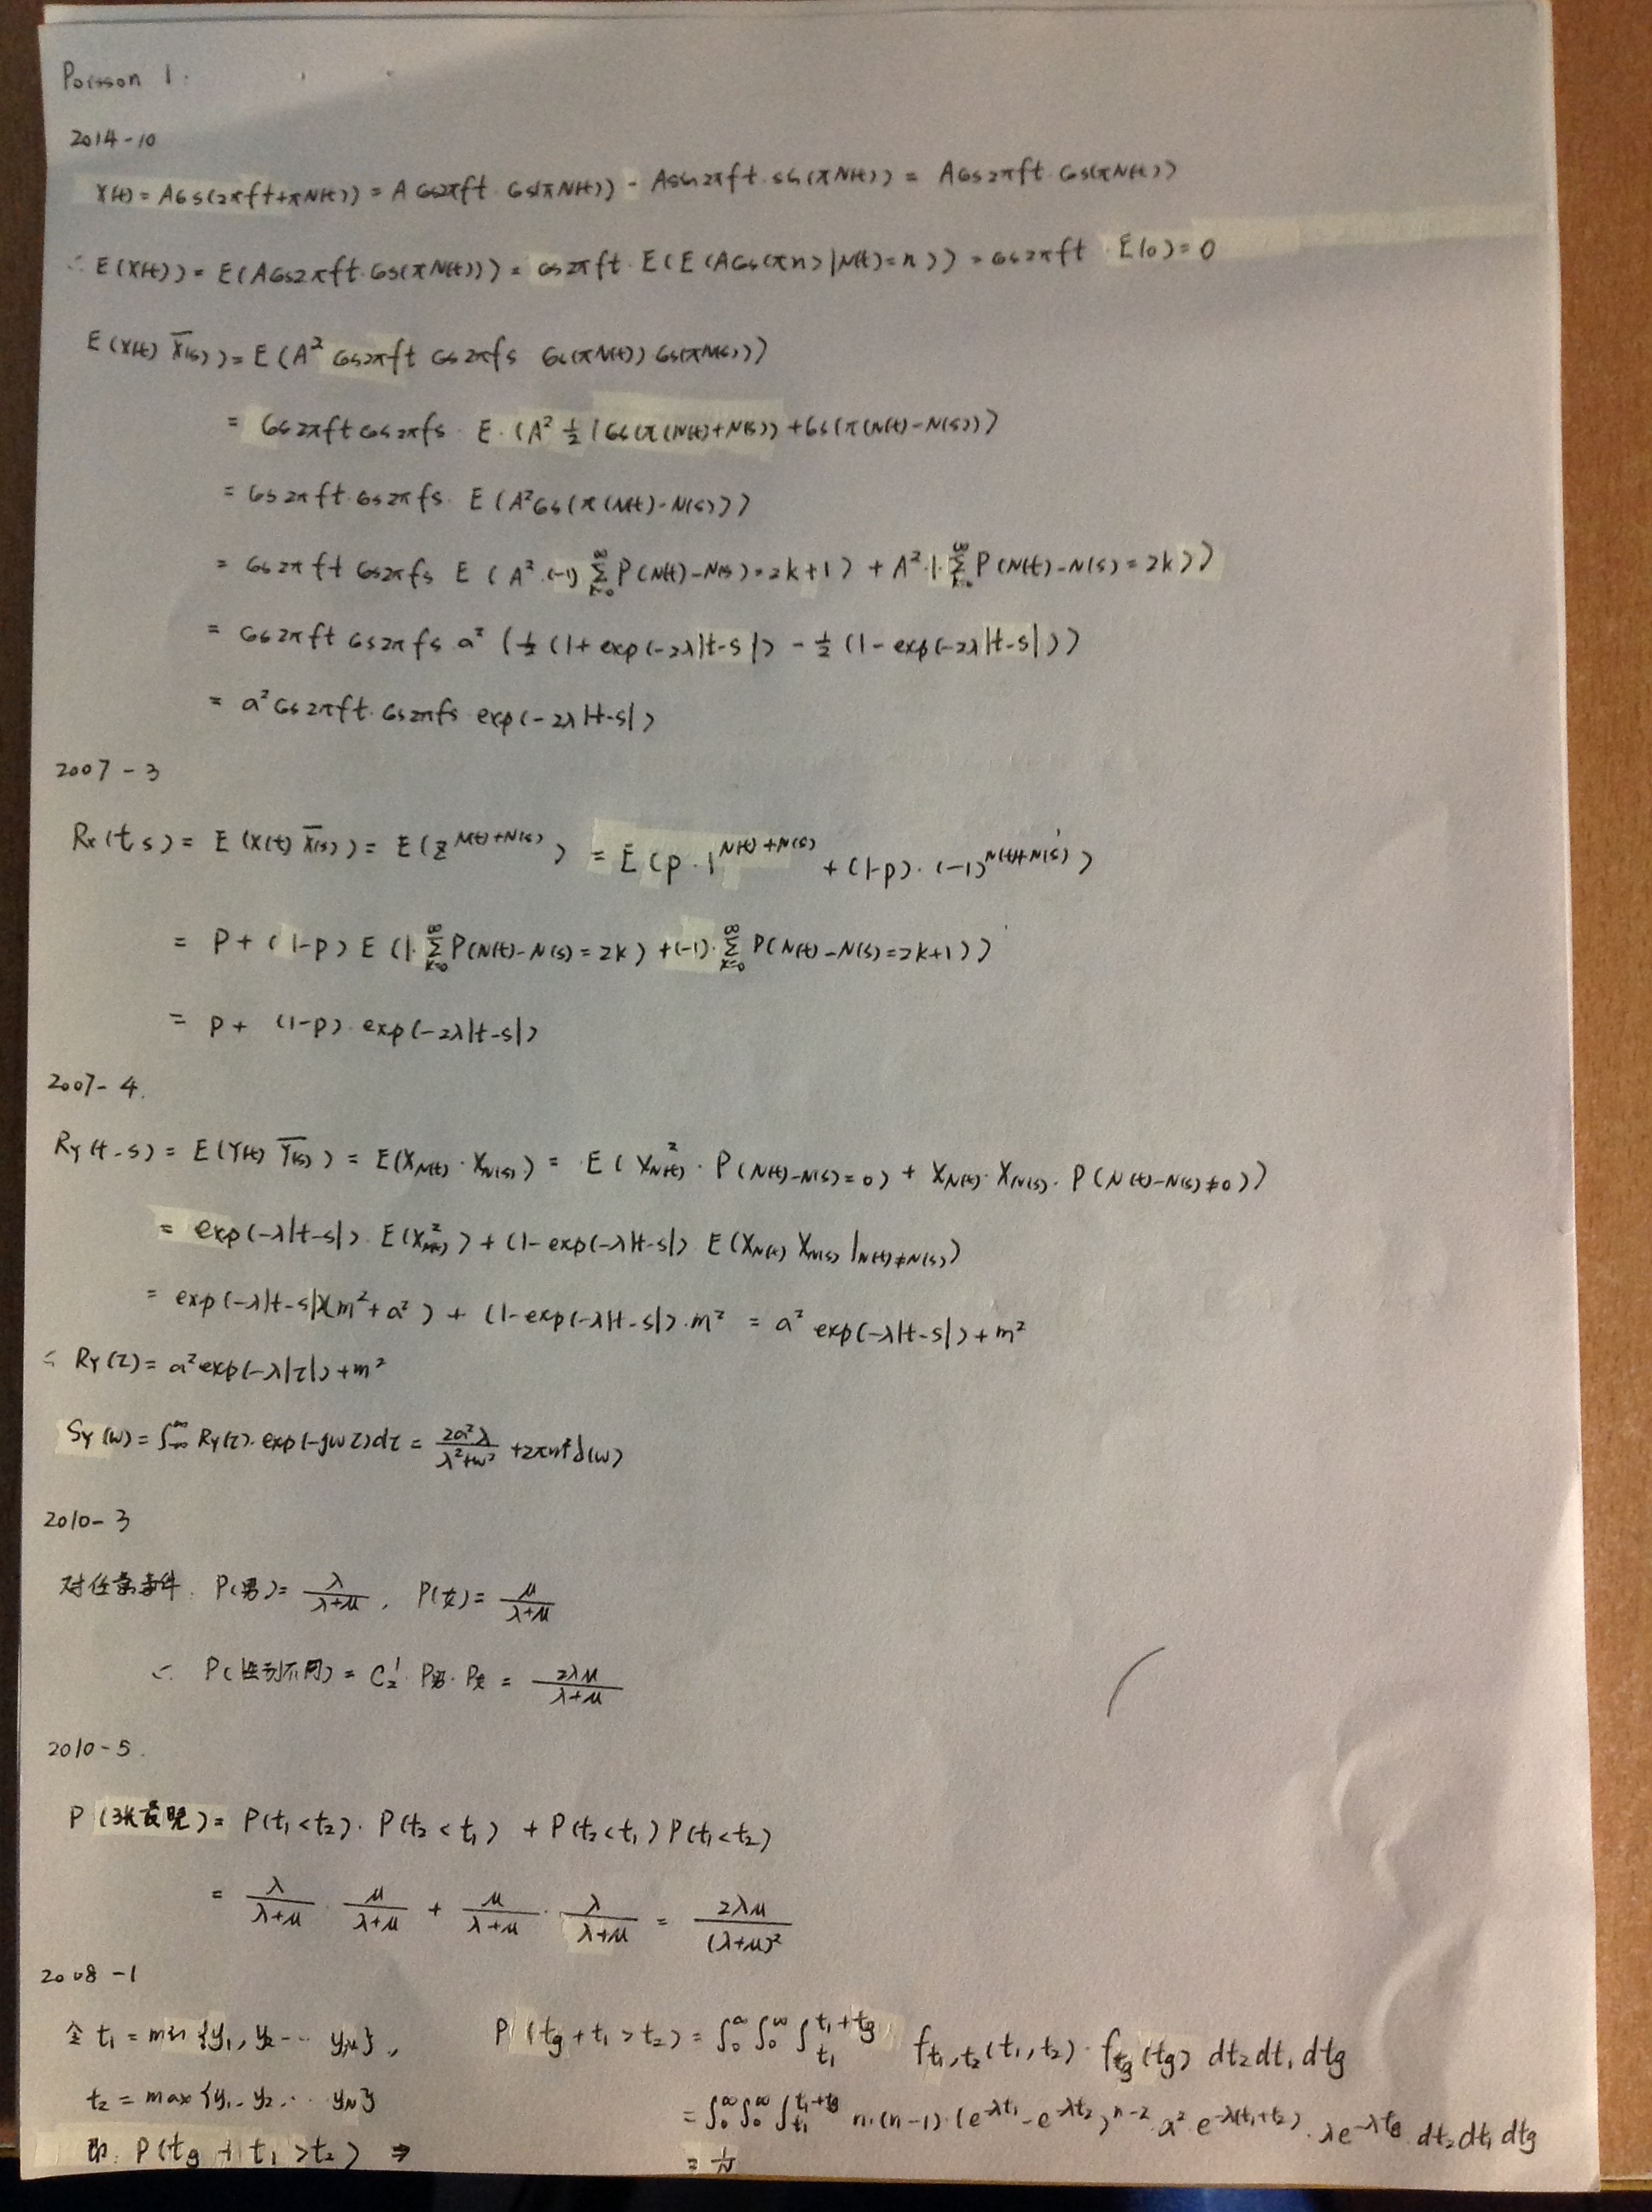 Poisson 1.
2014-10
X(t) = Acos(2πft+πN(t)) = A cos2πft · cos(πN(t)) - Asin2πft · sin(πN(t)) = Acos2πft · cos(πN(t))
∴ E(X(t)) = E(Acos2πft · cos(πN(t))) = cos2πft · E(E(Acos(πn)|N(t)=n)) = cos2πft · E(0) = 0
E(X(t) X̅(s)) = E(A² cos2πft cos2πfs cos(πN(t)) cos(πN(s)))
= cos2πft cos2πfs · E·(A² ½ (cos(π(N(t)+N(s))) + cos(π(N(t)-N(s))))
= cos2πft · cos2πfs · E(A²cos(π(N(t)-N(s))))
= cos2πft cos2πfs E(A²·(-1) ∑_{k=0}^∞ P(N(t)-N(s)=2k+1) + A²·1·∑_{k=0}^∞ P(N(t)-N(s)=2k))
= cos2πft cos2πfs a² (½(1+exp(-2λ|t-s|) - ½(1-exp(-2λ|t-s|))
= a² cos2πft · cos2πfs exp(-2λ|t-s|)
2007-3
Rx(t,s) = E(X(t) X̅(s)) = E(Z^{N(t)+N(s)}) = E(p·1^{N(t)+N(s)} + (1-p)·(-1)^{N(t)+N(s)})
= p + (1-p) E(1·∑_{k=0}^∞ P(N(t)-N(s)=2k) + (-1)·∑_{k=0}^∞ P(N(t)-N(s)=2k+1))
= p + (1-p)·exp(-2λ|t-s|)
2007-4.
R_Y(t-s) = E(Y(t) Y̅(s)) = E(X_{N(t)} · X_{N(s)}) = E(X_{N(t)}² · P(N(t)-N(s)=0) + X_{N(t)} · X_{N(s)} · P(N(t)-N(s)≠0))
= exp(-λ|t-s|) · E(X_{N(t)}²) + (1-exp(-λ|t-s|) E(X_{N(t)} X_{N(s)} |_{N(t)≠N(s)})
= exp(-λ|t-s|)(m²+a²) + (1-exp(-λ|t-s|)·m² = a² exp(-λ|t-s|)+m²
∴ R_Y(τ) = a² exp(-λ|τ|)+m²
S_Y(ω) = ∫_{-∞}^{∞} R_Y(τ)·exp(-jωτ)dτ = 2a²λ/(λ²+ω²) + 2πm²δ(ω)
2010-3
对任意事件. P(男) = λ/(λ+μ), P(女) = μ/(λ+μ)
∴ P(性别不同) = C₂¹ · P男 · P女 = 2λμ/(λ+μ)
2010-5.
P(3故最晚) = P(t₁<t₂)·P(t₂<t₁) + P(t₂<t₁)P(t₁<t₂)
= λ/(λ+μ) · μ/(λ+μ) + μ/(λ+μ) · λ/(λ+μ) = 2λμ/(λ+μ)²
2008-1
令 t₁ = min{y₁, y₂ ··· y_N},
t₂ = max{y₁, y₂ ··· y_N}
即: P(tg + t₁ > t₂) ⇒
P(tg + t₁ > t₂) = ∫₀^∞ ∫₀^∞ ∫_{t₁}^{t₁+tg} f_{t₁,t₂}(t₁,t₂) · f_{tg}(tg) dt₂ dt₁ dtg
= ∫₀^∞ ∫₀^∞ ∫_{t₁}^{t₁+tg} n·(n-1)·(e^{-λt₁} - e^{-λt₂})^{n-2} · λ² e^{-λ(t₁+t₂)} · λe^{-λtg} dt₂ dt₁ dtg
= 1/N